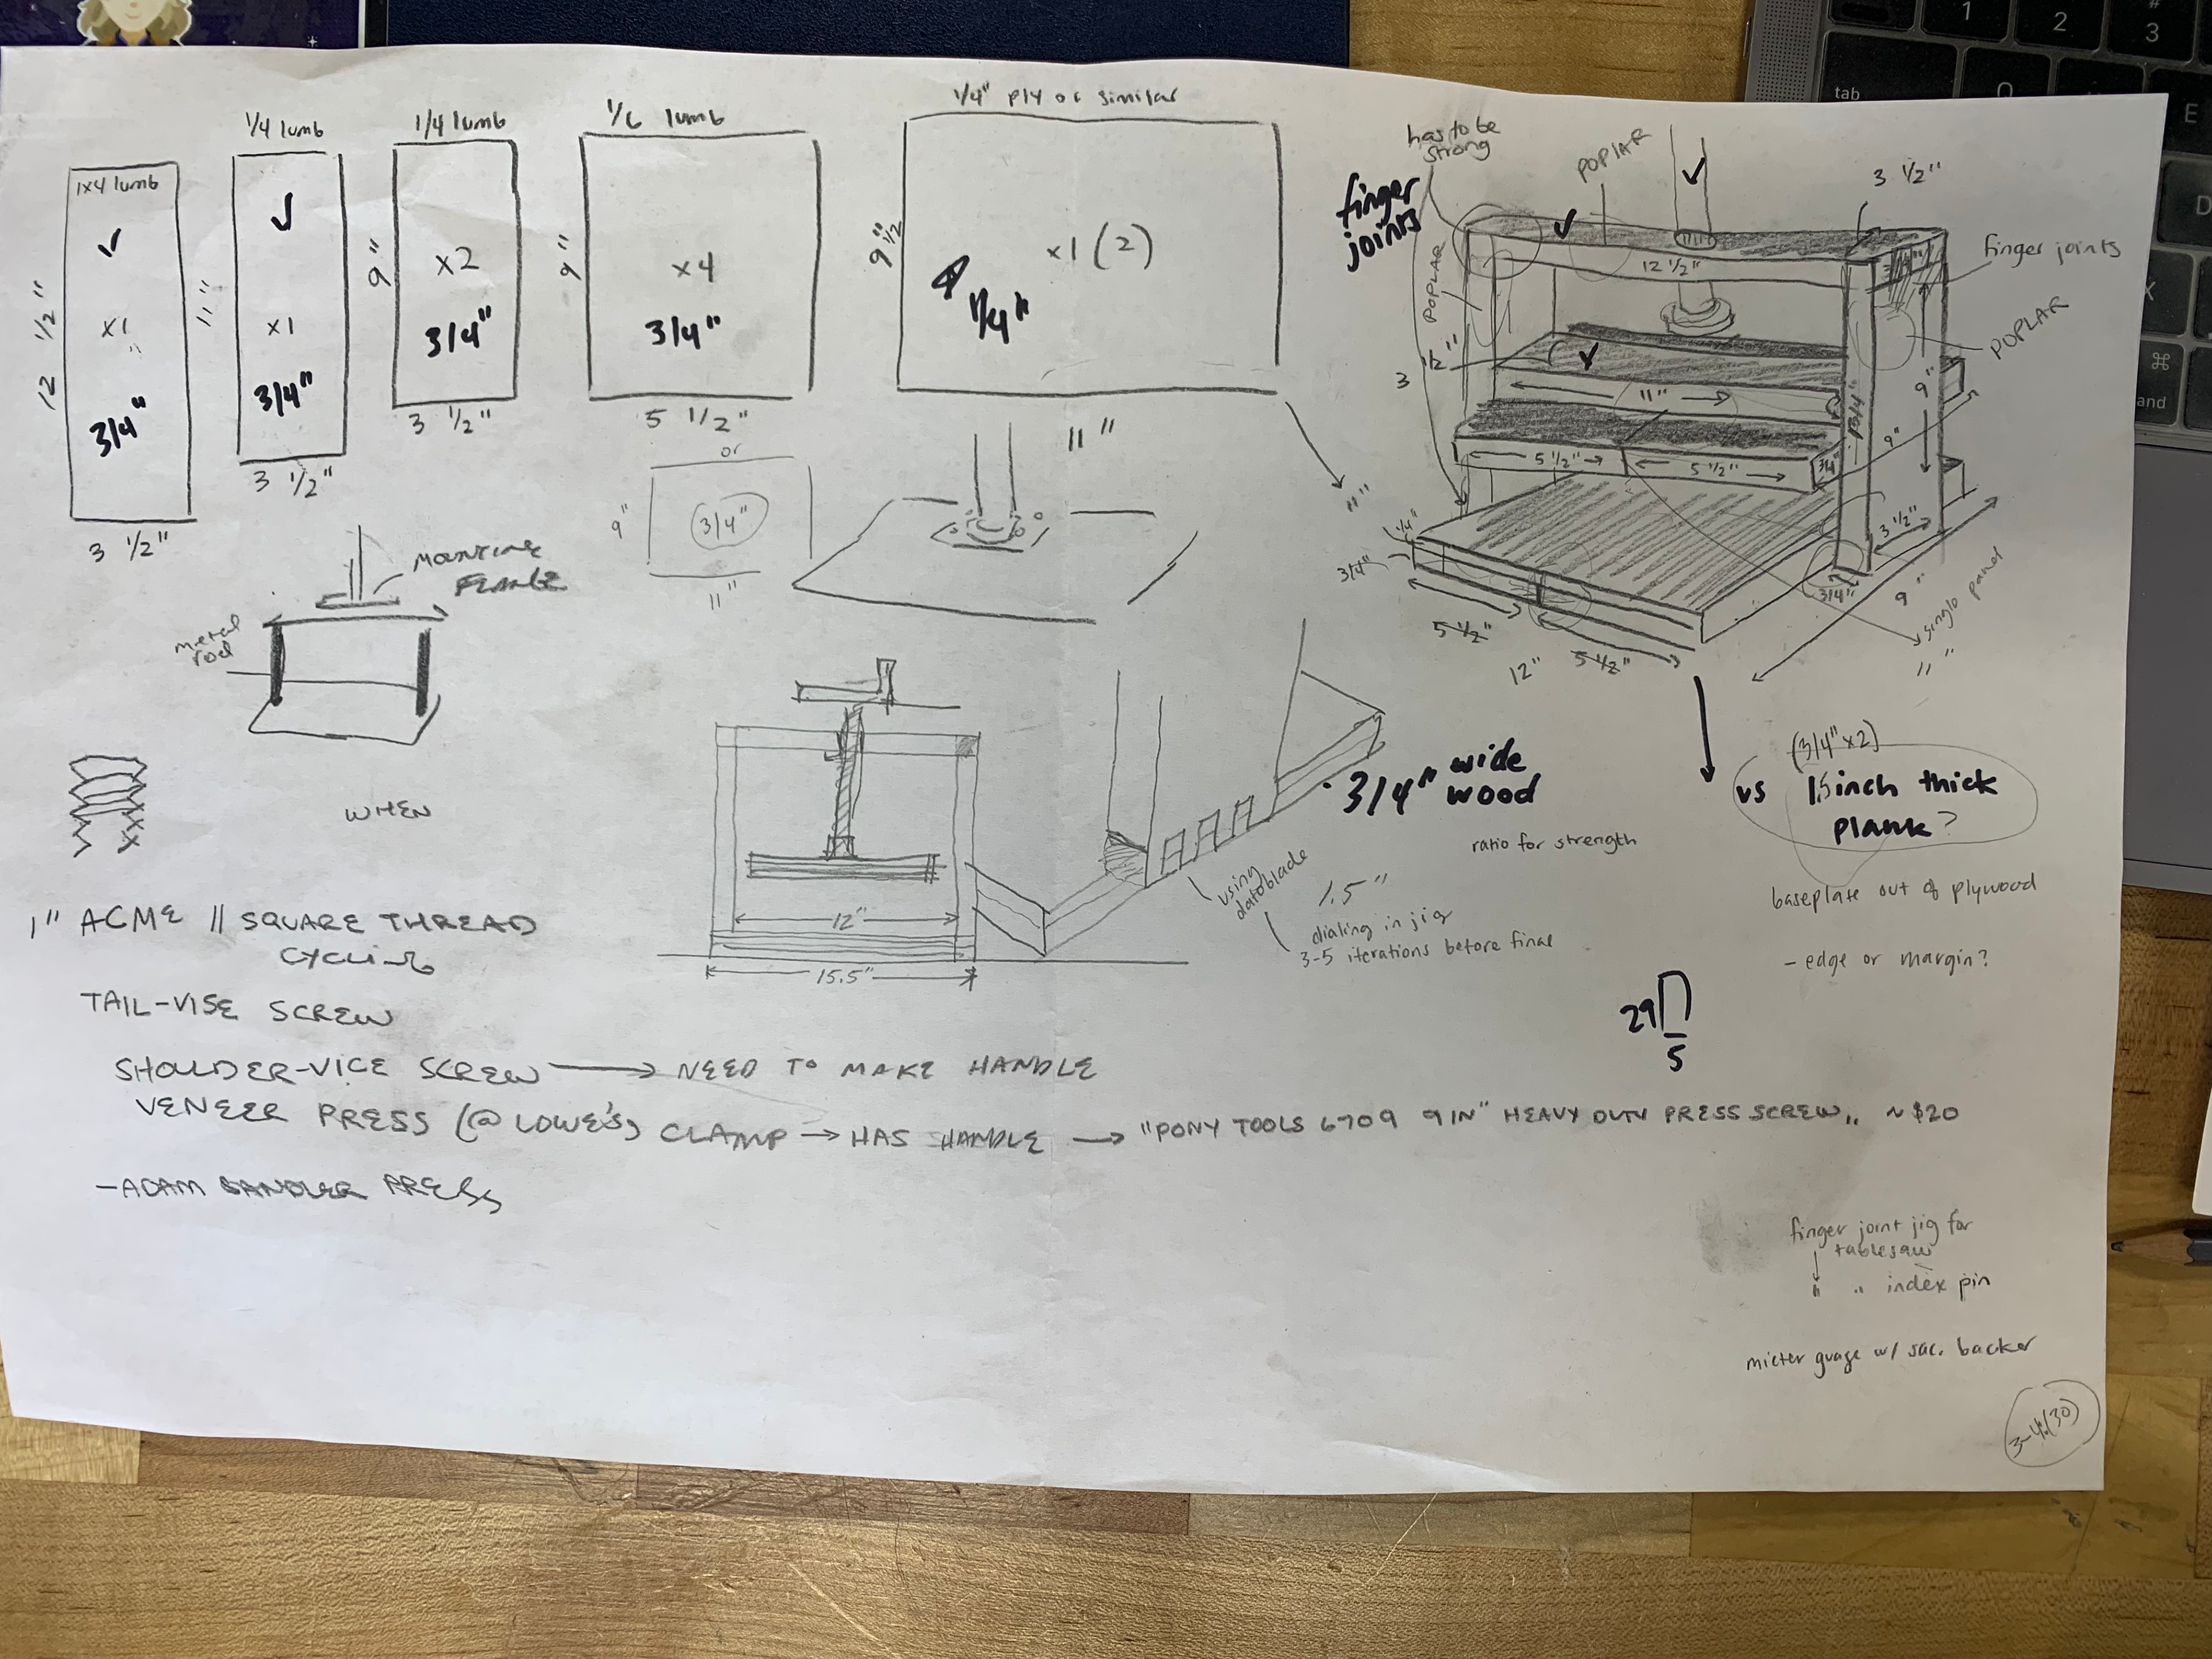 1/4 lumb
1/4 lumb
1/6 lumb
1/4" PLY or similar
1x4 lumb
x1
3/4"
12 1/2"
3 1/2"
x1
3/4"
11"
3 1/2"
9"
x2
3/4"
3 1/2"
9"
x4
3/4"
5 1/2"
or
9"
3/4"
11"
9 1/2"
x1 (2)
1/4"
11"
has to be
strong
finger
joints
POPLAR
POPLAR
3 1/2"
finger joints
POPLAR
12 1/2"
3 1/2"
11"
3/4"
9"
9"
5 1/2"
5 1/2"
3/4"
3 1/2"
3/4"
11"
1/4"
3/4"
5 1/2"
12"
5 1/2"
9"
single panel
11"
MOUNTING
FLANGE
metal
rod
WHEN
12"
15.5"
3/4" wide
wood
ratio for strength
using
datoblade
1.5"
dialing in jig
3-5 iterations before final
(3/4" x2)
vs 1.5 inch thick
plank?
baseplate out of plywood
- edge or margin?
29
5
1" ACME // SQUARE THREAD
TAIL-VISE SCREW
SHOULDER-VICE SCREW → NEED TO MAKE HANDLE
VENEER PRESS (@ LOWE'S) CLAMP → HAS HANDLE → "PONY TOOLS 6709 9 IN" HEAVY DUTY PRESS SCREW,, ~ $20
- ADAM SANDLER PRESS
finger joint jig for
tablesaw
" " index pin
mieter guage w/ sac. backer
tab
1
2
#
3
E
D
⌘
and